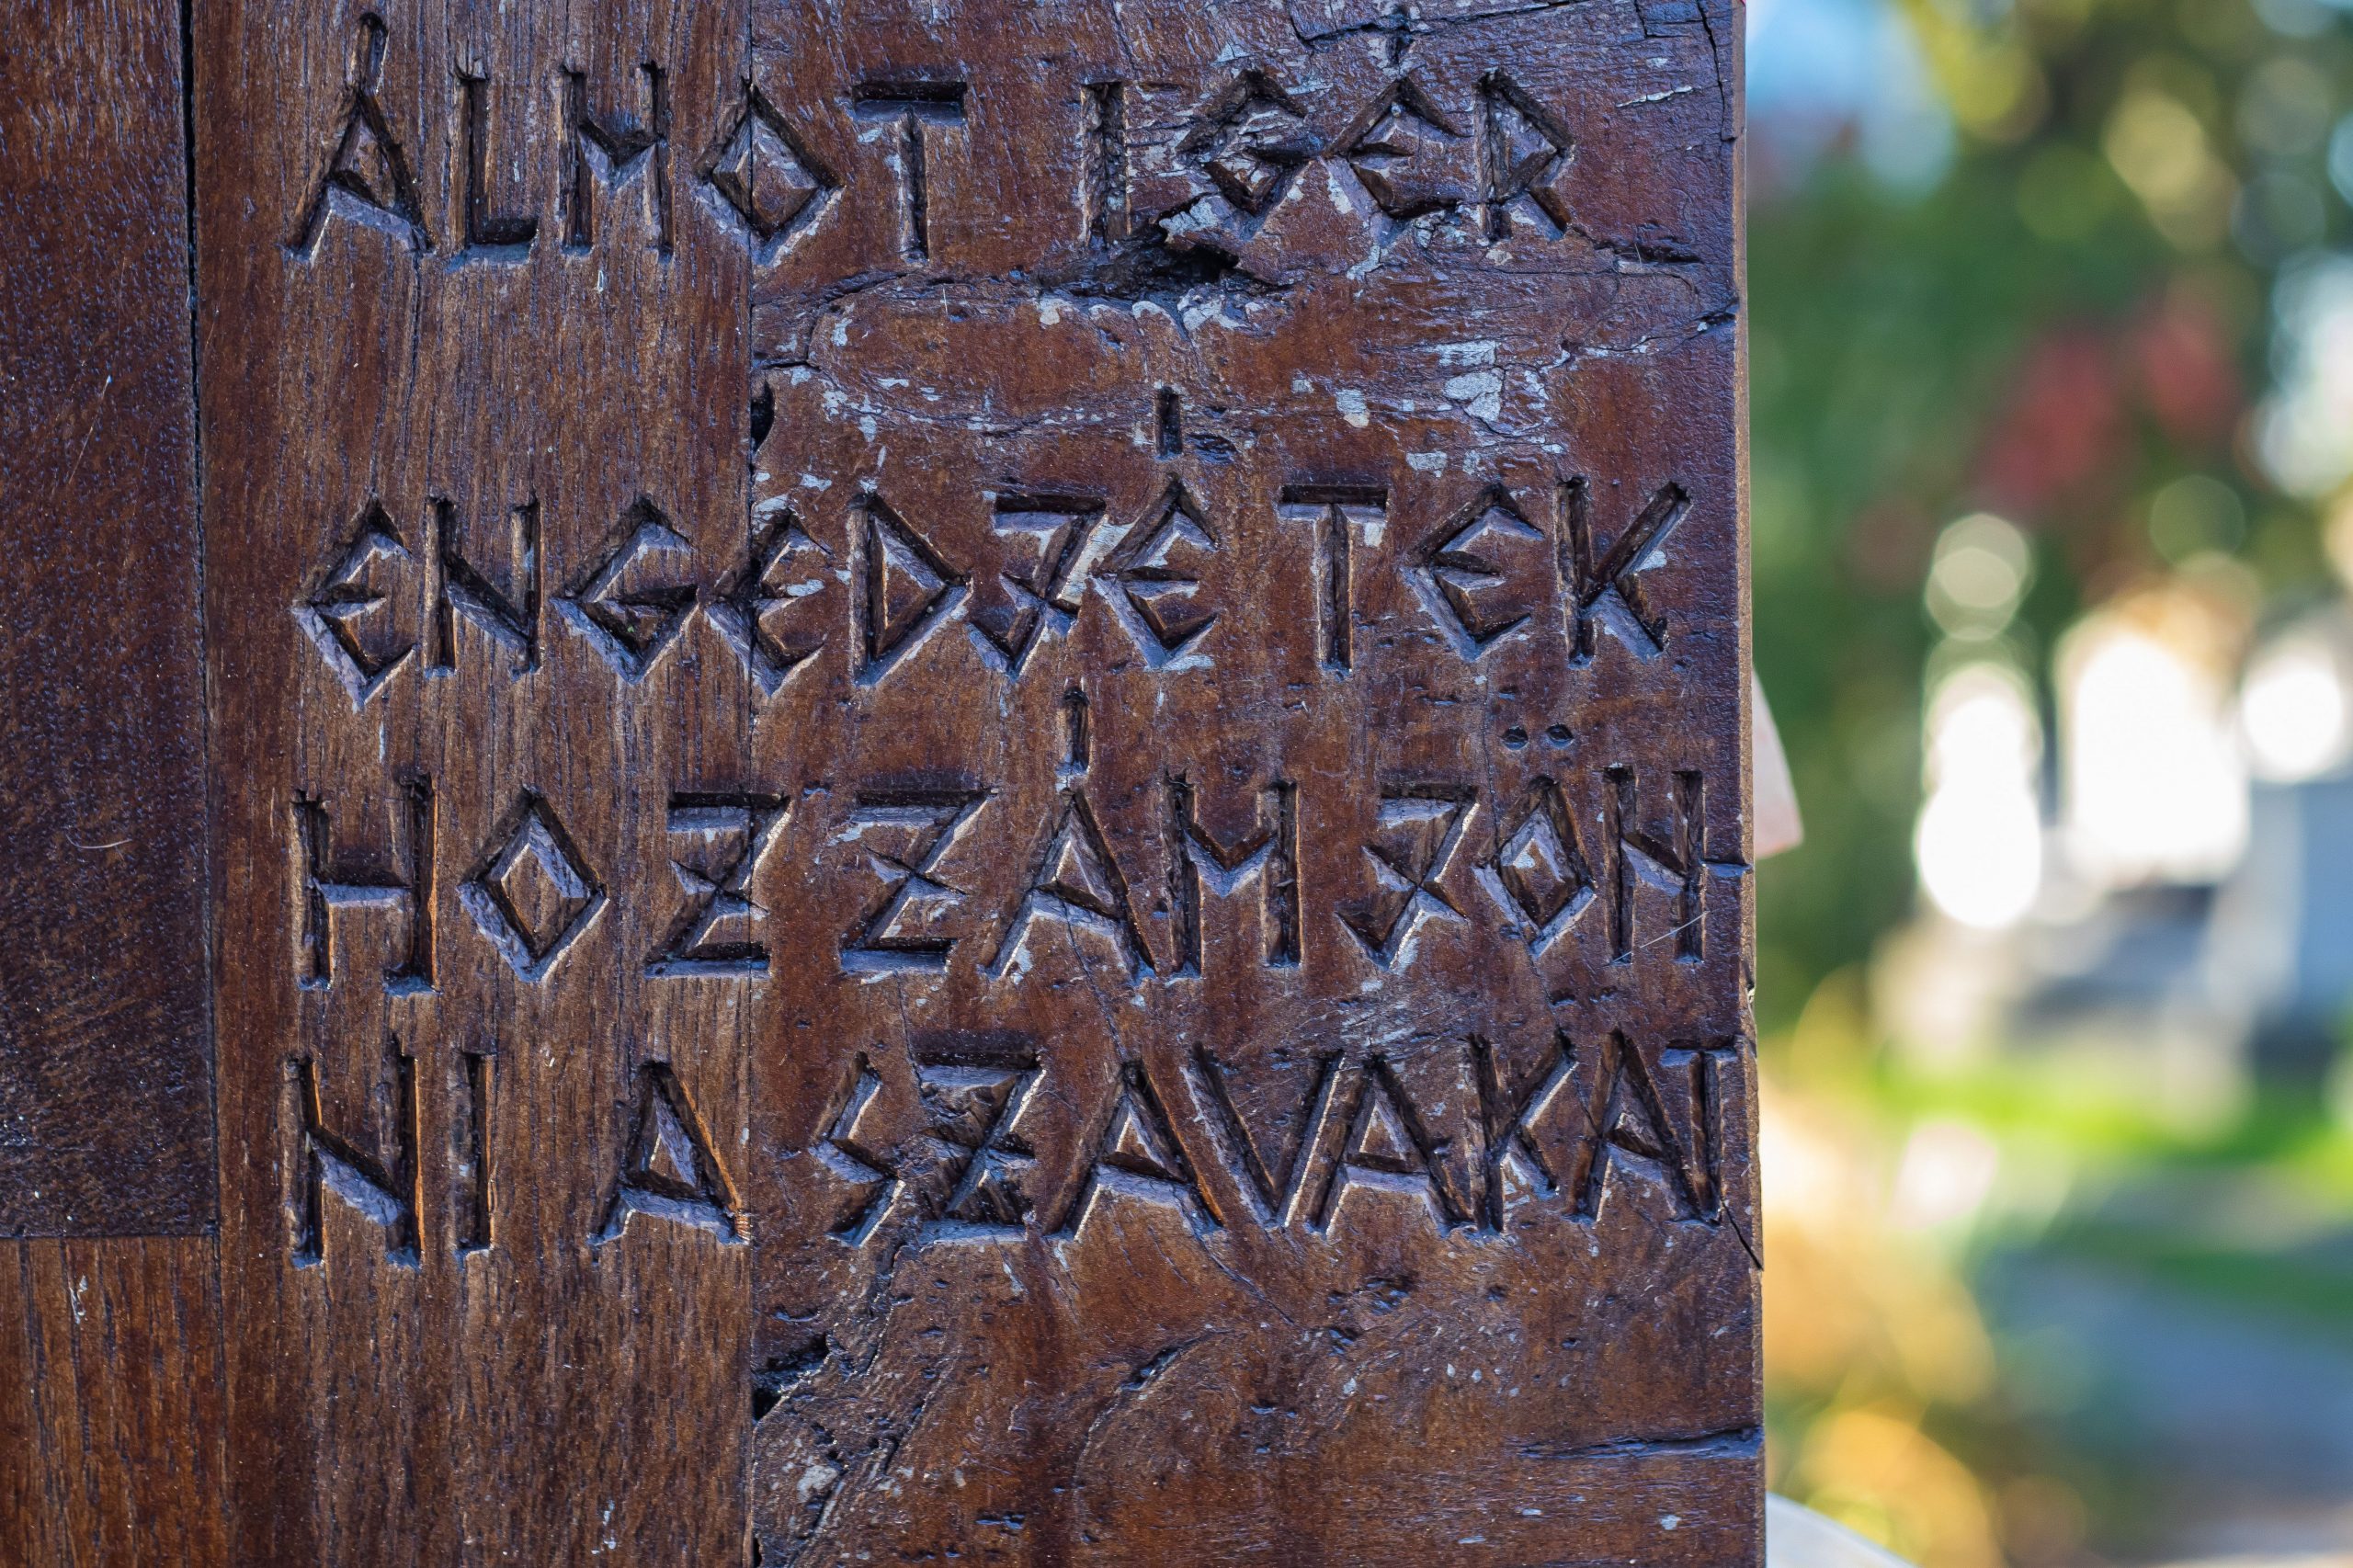 ÁLMOT IGÉR
ENGEDJÉTEK
HOZZÁM JÖN
NI A SZAVAKAT